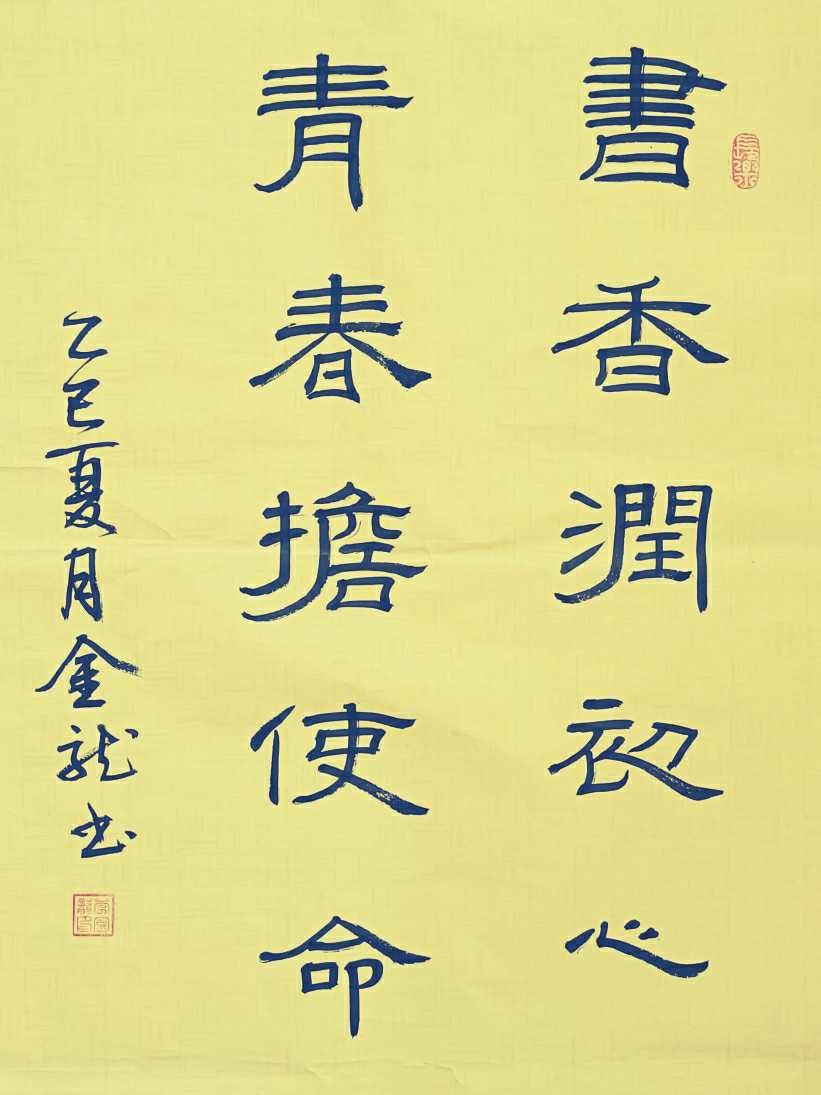 書香潤初心
青春擔使命
乙巳夏月金龍书
長樂